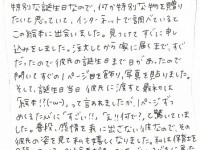 特別な誕生日なので、何か特別な物を贈り
たいと思っていて、インターネットで調べていると
この絵本に出会いました。見つけて すぐに申し
込みをしました。注文してから家に届くまで、すぐ
だったので彼の誕生日まで日があったので
開いてすぐの1ページ目を飾り、写真を貼りました。
そして、誕生日当日 彼に渡すと最初は
「絵本!?(笑)」って言われましたが、1ページずつ
めくるたびに「すごい!!」「え!!何で?」と驚いていま
した。普段、感情を表に出さない彼なので、その
彼の姿を見て私も嬉しくなりました。私は保育士を